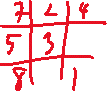 7 2 4
5 3
8 1